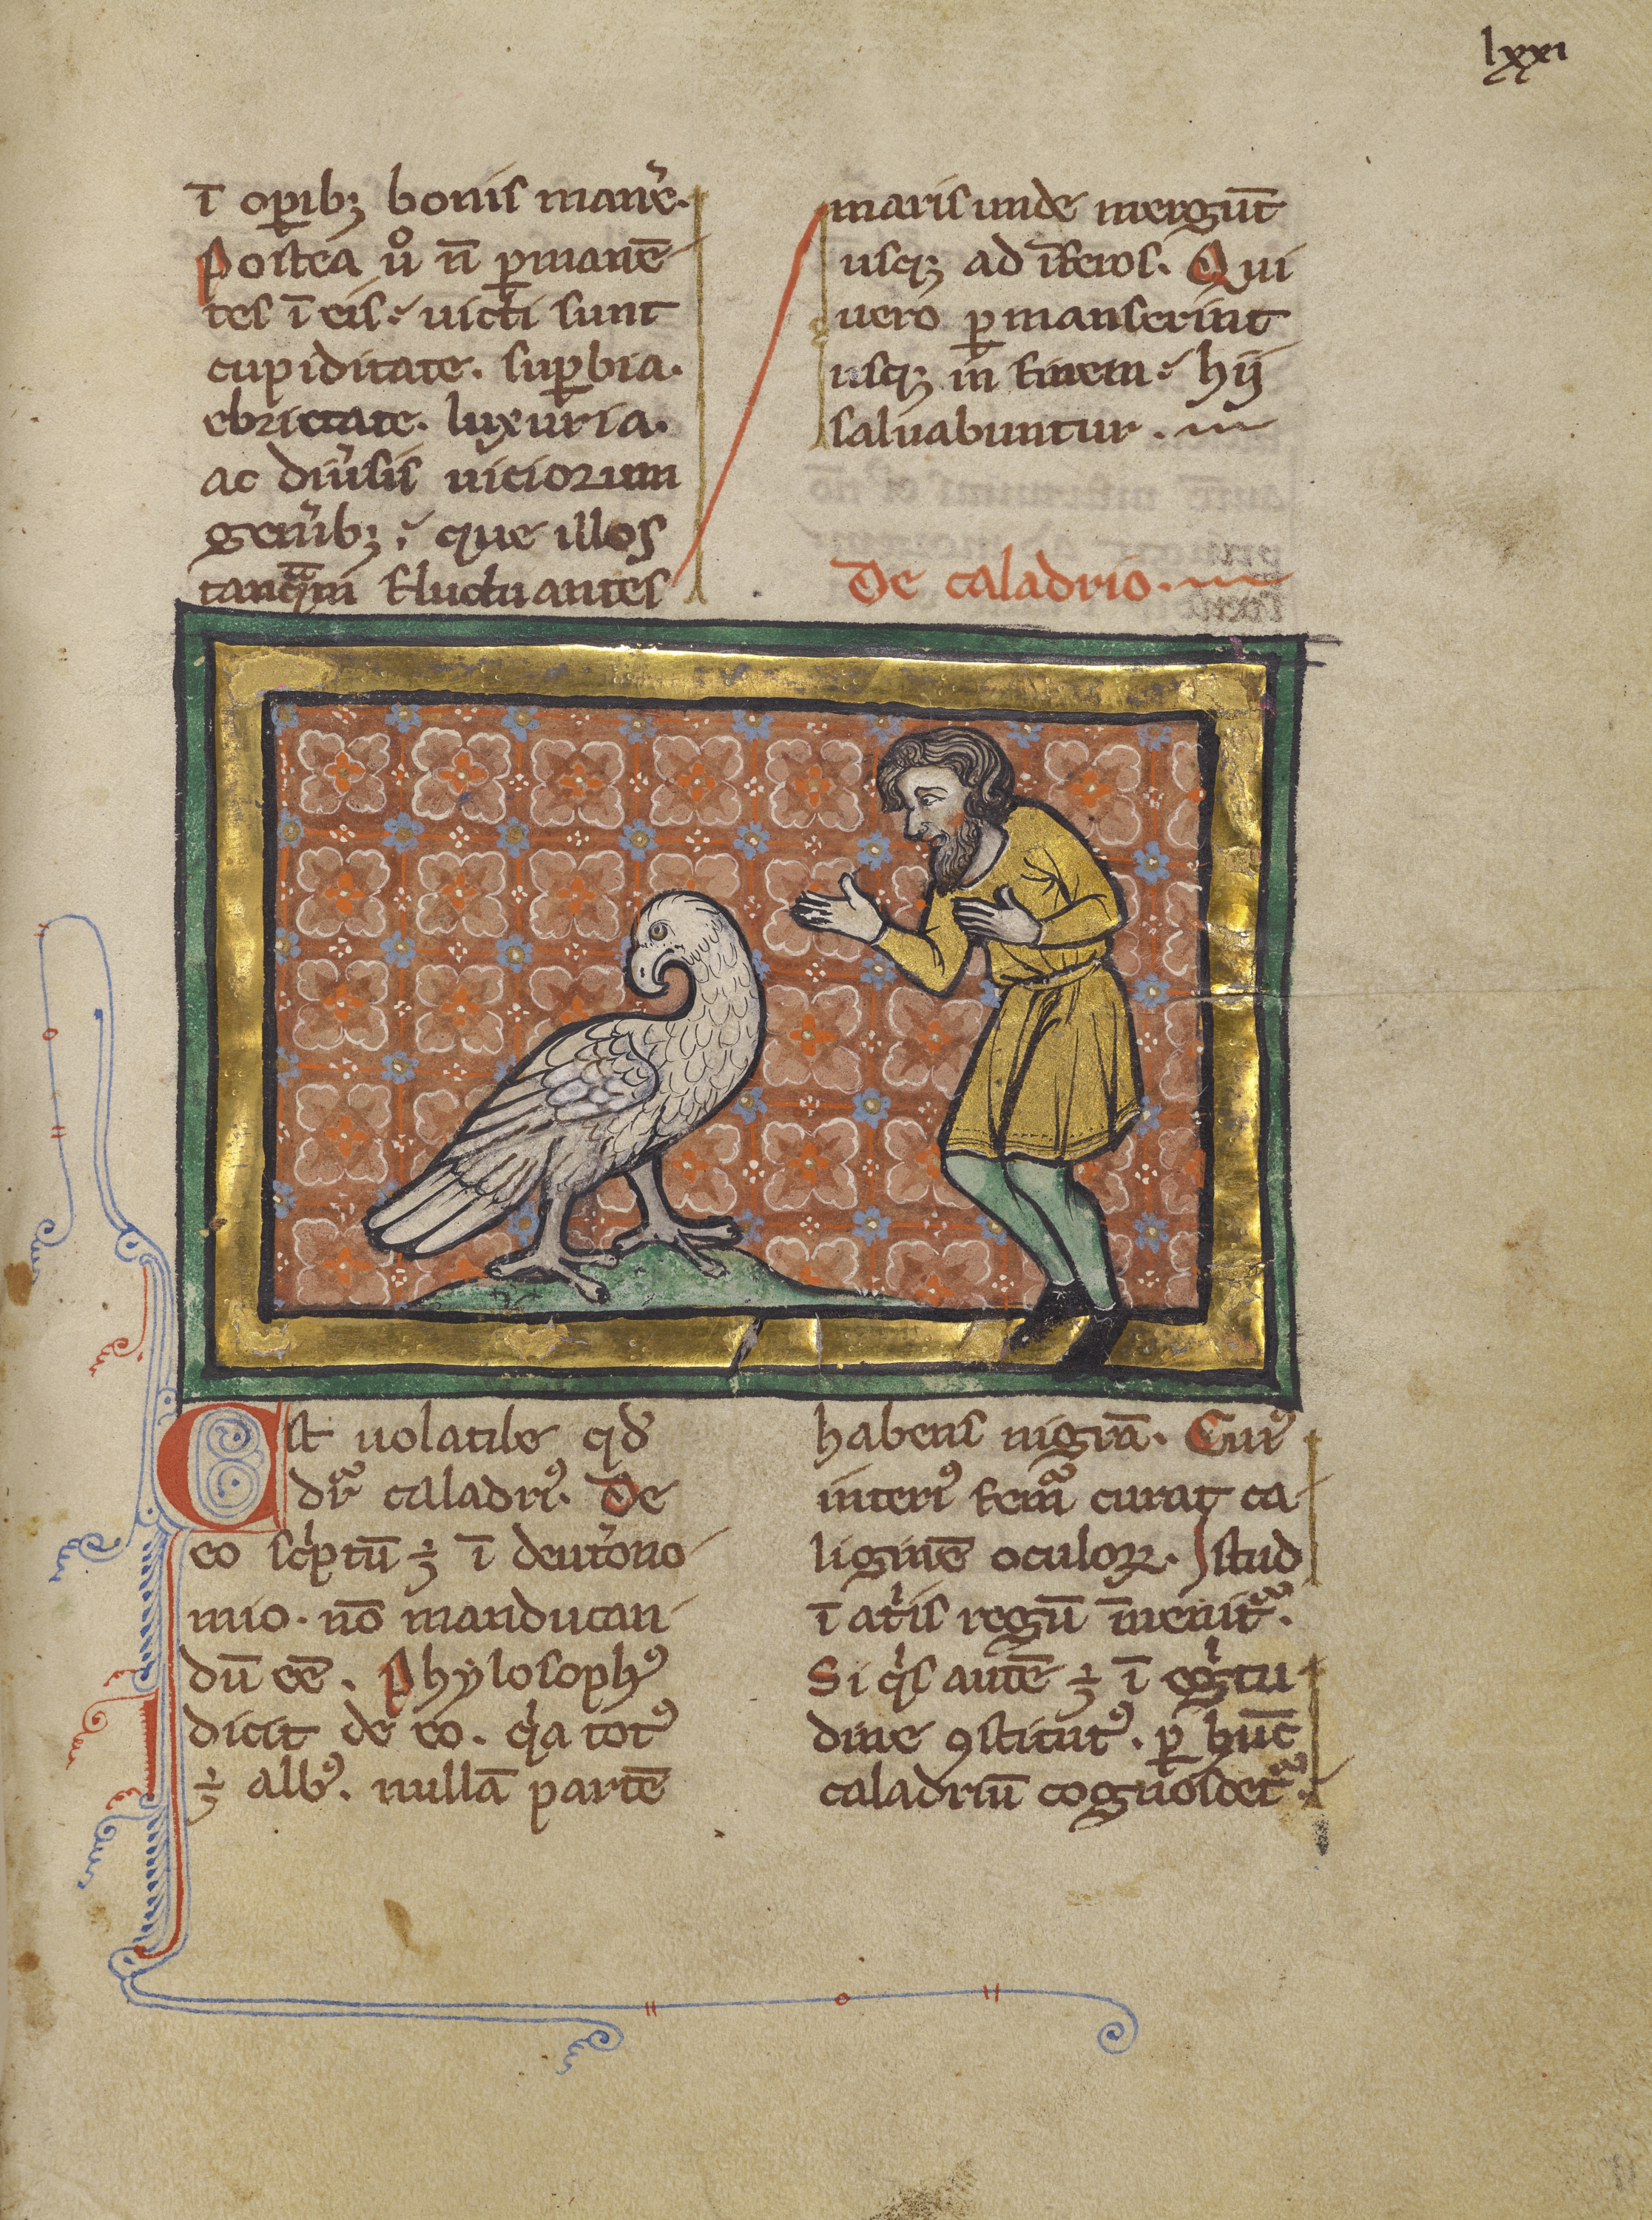 lxxi
ī op̄ibꝫ bonis manẽ.
Postea ůo n̄ ꝑmanē
tes ī eis. uicti sunt
cupiditate. suꝑbia.
ebrietate. luxuria.
ac diũsis uiciorum
genĩbꝫ. que illos
tanqᵃm fluctuantes
maris unde mergūt
usqꝫ ad īferos. Qui
uero ꝑmanserint
usqꝫ in finem. hij
saluabuntur.
De caladrio.
Est uolatile qđ
dr̃ caladriꝰ. De
eo scͥptū ÷ ī deut̃ono
mio. nō manducan
dū eē. Phylosophꝰ
dicit de eo. qͥa totꝰ
÷ albꝰ. nullā partē
habens nigrā. Cuiꝰ
interiꝰ femᷓ curat ca
liginē oculoꝝ. Istud
ī atͥis regū īuenitᷓ.
Si qͥs autē ÷ ī egͥtu
dine ꝯstitutꝰ. ꝑ hūc
caladriū cognoscetᷓ.